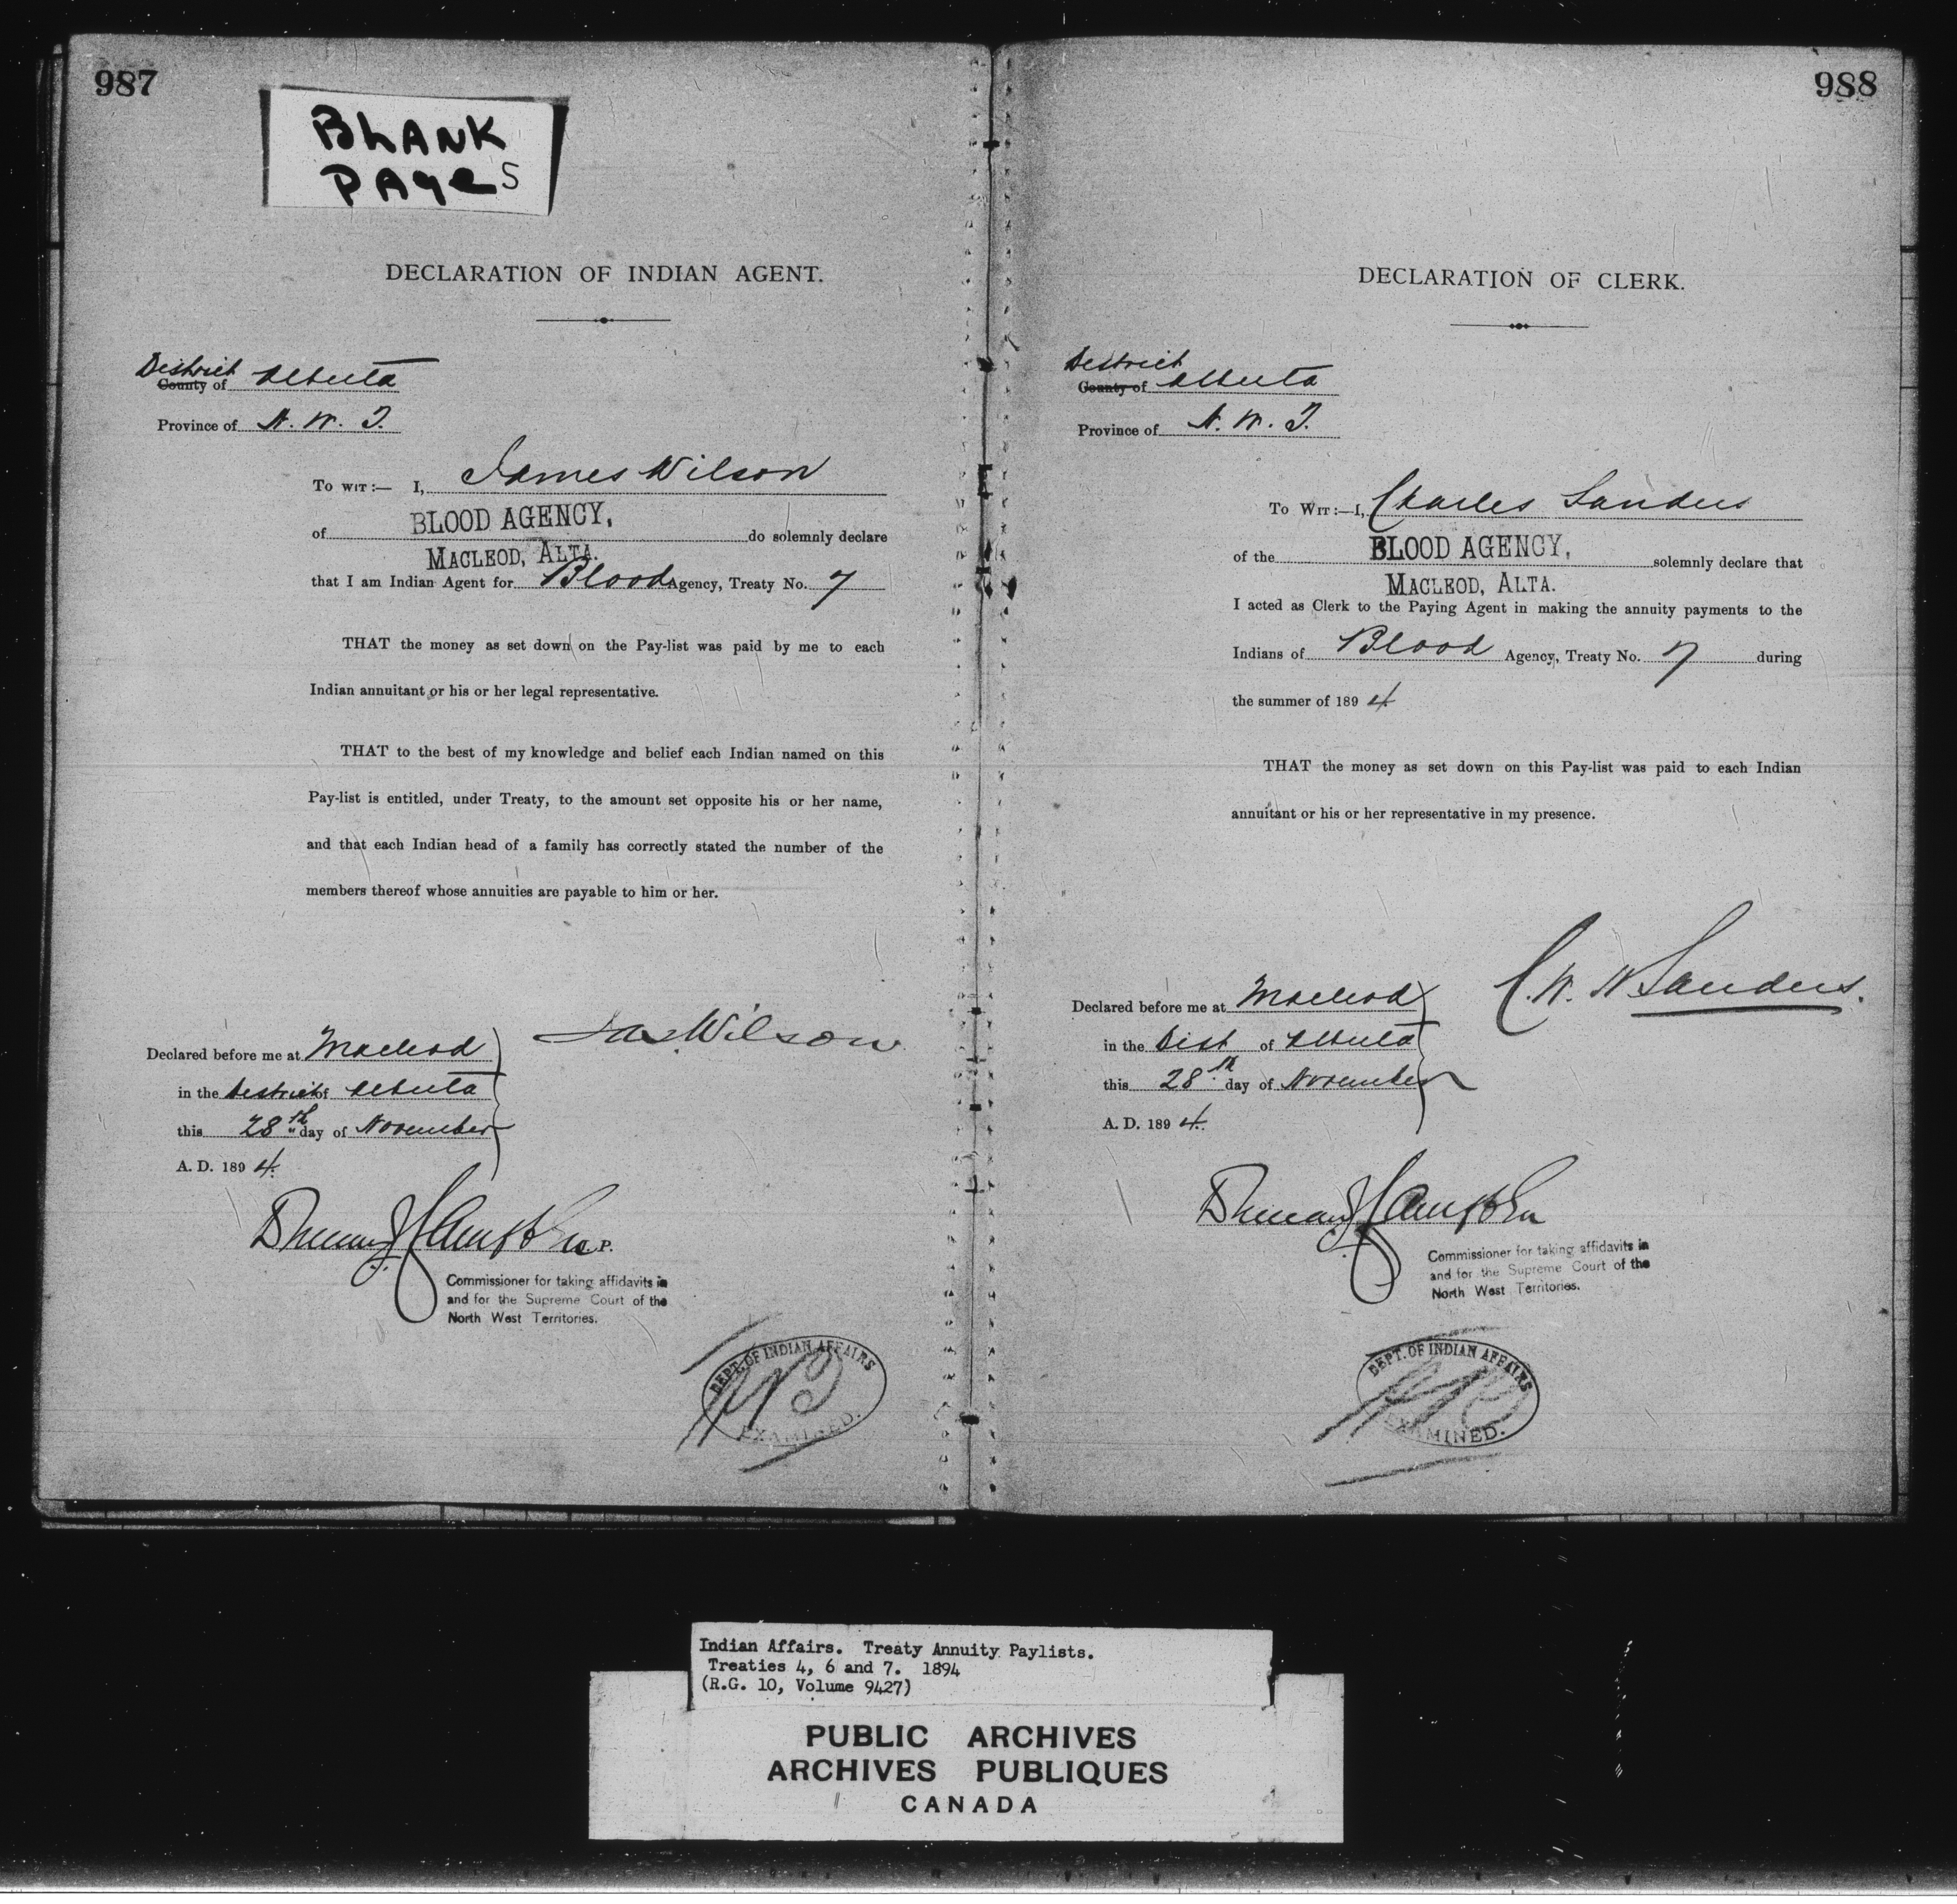 987
BLANK
PAgeS
DECLARATION OF INDIAN AGENT.
District
County of Alberta
Province of N. W. T.
To wit:— I, James Wilson
of BLOOD AGENCY, do solemnly declare
MACLEOD, ALTA.
that I am Indian Agent for Blood Agency, Treaty No. 7
THAT the money as set down on the Pay-list was paid by me to each
Indian annuitant or his or her legal representative.
THAT to the best of my knowledge and belief each Indian named on this
Pay-list is entitled, under Treaty, to the amount set opposite his or her name,
and that each Indian head of a family has correctly stated the number of the
members thereof whose annuities are payable to him or her.
Jas Wilson
Declared before me at Macleod
in the District of Alberta
this 28th day of November
A. D. 1894.
Duncan J Campbell
J.P.
Commissioner for taking affidavits in
and for the Supreme Court of the
North West Territories.
DEPT. OF INDIAN AFFAIRS
EXAMINED.
988
DECLARATION OF CLERK.
District
County of Alberta
Province of N. W. T.
To Wit:—I, Charles Sanders
of the BLOOD AGENCY, solemnly declare that
MACLEOD, ALTA.
I acted as Clerk to the Paying Agent in making the annuity payments to the
Indians of Blood Agency, Treaty No. 7 during
the summer of 1894
THAT the money as set down on this Pay-list was paid to each Indian
annuitant or his or her representative in my presence.
C. W. H Sanders.
Declared before me at Macleod
in the Dist of Alberta
this 28th day of November
A. D. 1894.
Duncan J Campbell
Commissioner for taking affidavits in
and for the Supreme Court of the
North West Territories.
DEPT. OF INDIAN AFFAIRS
EXAMINED.
Indian Affairs. Treaty Annuity Paylists.
Treaties 4, 6 and 7. 1894
(R.G. 10, Volume 9427)
PUBLIC ARCHIVES
ARCHIVES PUBLIQUES
CANADA